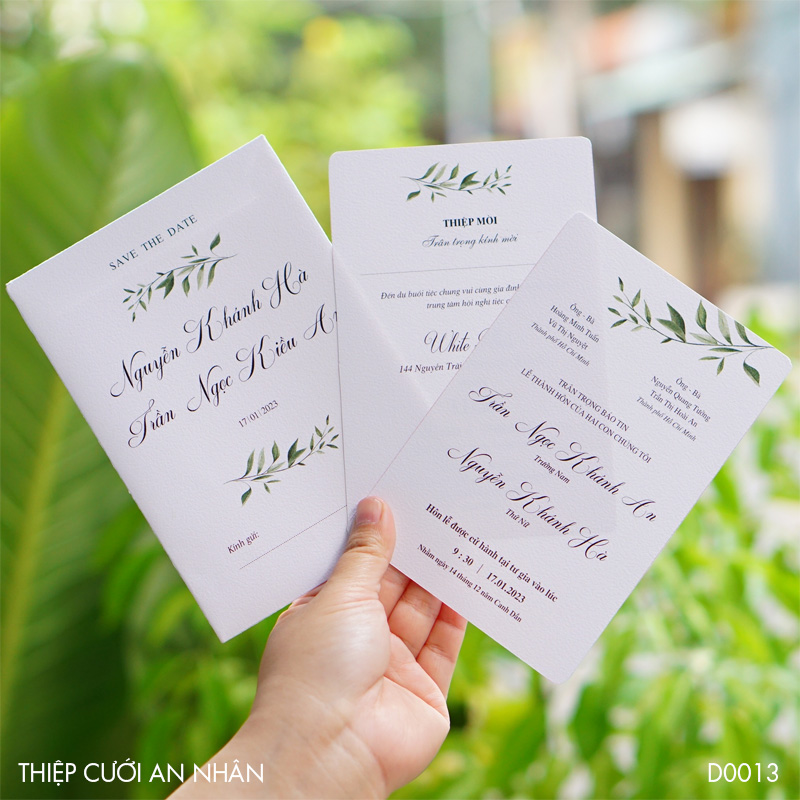 SAVE THE DATE
Nguyễn Khánh Hà
Trần Ngọc Kiều An
17/01/2023
Kính gửi:
THIỆP MỜI
Trân trọng kính mời
Đến dự buổi tiệc chung vui cùng gia đình
trung tâm hội nghị tiệc c
White
144 Nguyễn Trãi
Ông - Bà
Hoàng Minh Tuấn
Vũ Thị Nguyệt
Thành phố Hồ Chí Minh
Ông - Bà
Nguyễn Quang Tường
Trần Thị Hoài An
Thành phố Hồ Chí Minh
TRÂN TRỌNG BÁO TIN
LỄ THÀNH HÔN CỦA HAI CON CHÚNG TÔI
Trần Ngọc Khánh An
Trưởng Nam
Nguyễn Khánh Hà
Thứ Nữ
Hôn lễ được cử hành tại tư gia vào lúc
9 : 30 | 17.01.2023
Nhằm ngày 14 tháng 12 năm Canh Dần
THIỆP CƯỚI AN NHÂN
D0013